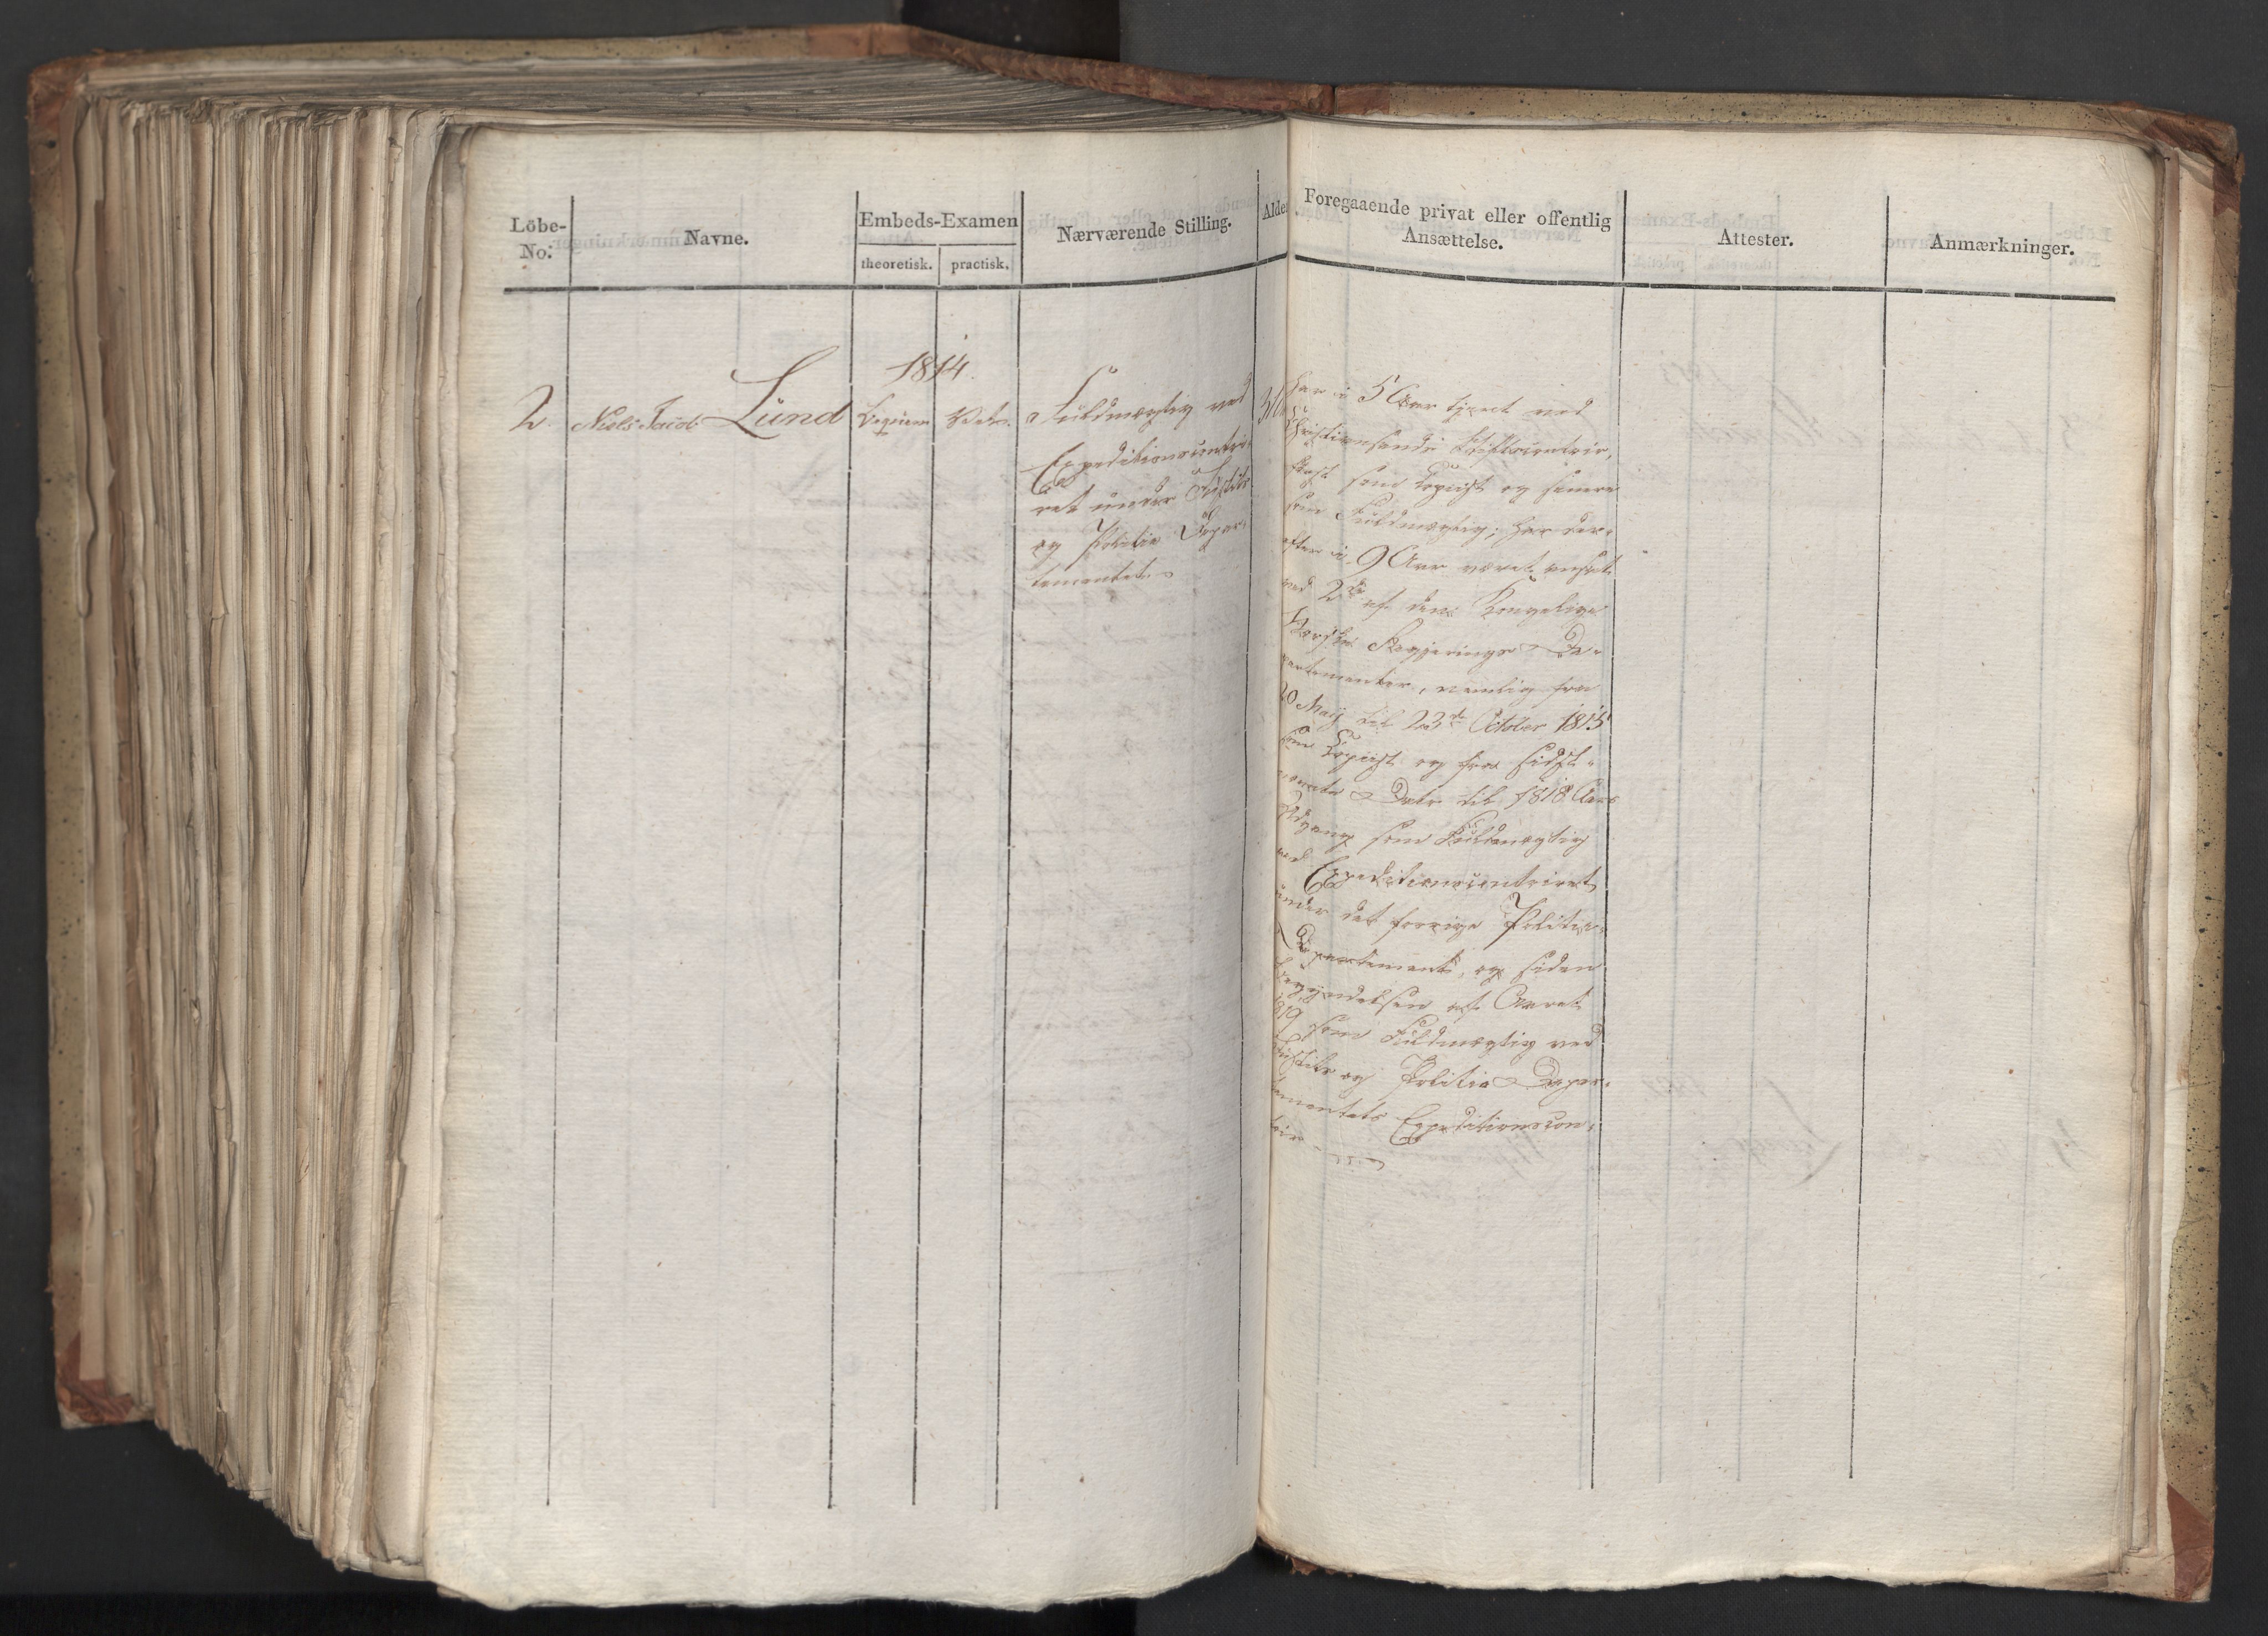 Löbe-
No:
Navne.
Embeds-Examen
theoretisk.
practisk.
Nærværende Stilling.
Alder
Foregaaende privat eller offentlig
Ansættelse.
Attester.
Anmærkninger.
2.
Niels Jacob Lund
1814.
Beqvem
Fuldmægtig ved
Expeditionscontoi-
ret under Justits
og Politie Depar-
tementet.
Har i 5 Aar tjent ved
Christiansands Stiftscontoir,
først som Copiist og senere
som Fuldmægtig; har der-
efter i 9 Aar været ansat
ved 2de af den Kongelige
Norske Regjerings De-
partementer, nemlig fra
20 Maij til 23de October 1815
som Copiist og fra sidst-
nævnte Dato til 1818 Aars
Udgang som Fuldmægtig
ved Expeditionscontoiret
under det forrige Politie-
Departement, og siden
Begyndelsen af Aaret
1819 som Fuldmægtig ved
Justits og Politie Depar-
tementets Expeditionscon-
toir